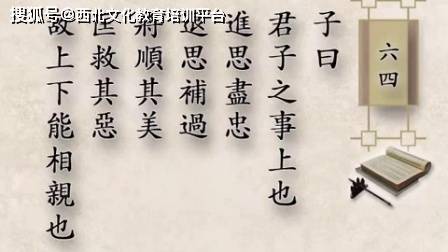 搜狐号@西北文化教育培训平台
六四
子曰
君子之事上也
進思盡忠
退思補過
將順其美
匡救其惡
故上下能相親也